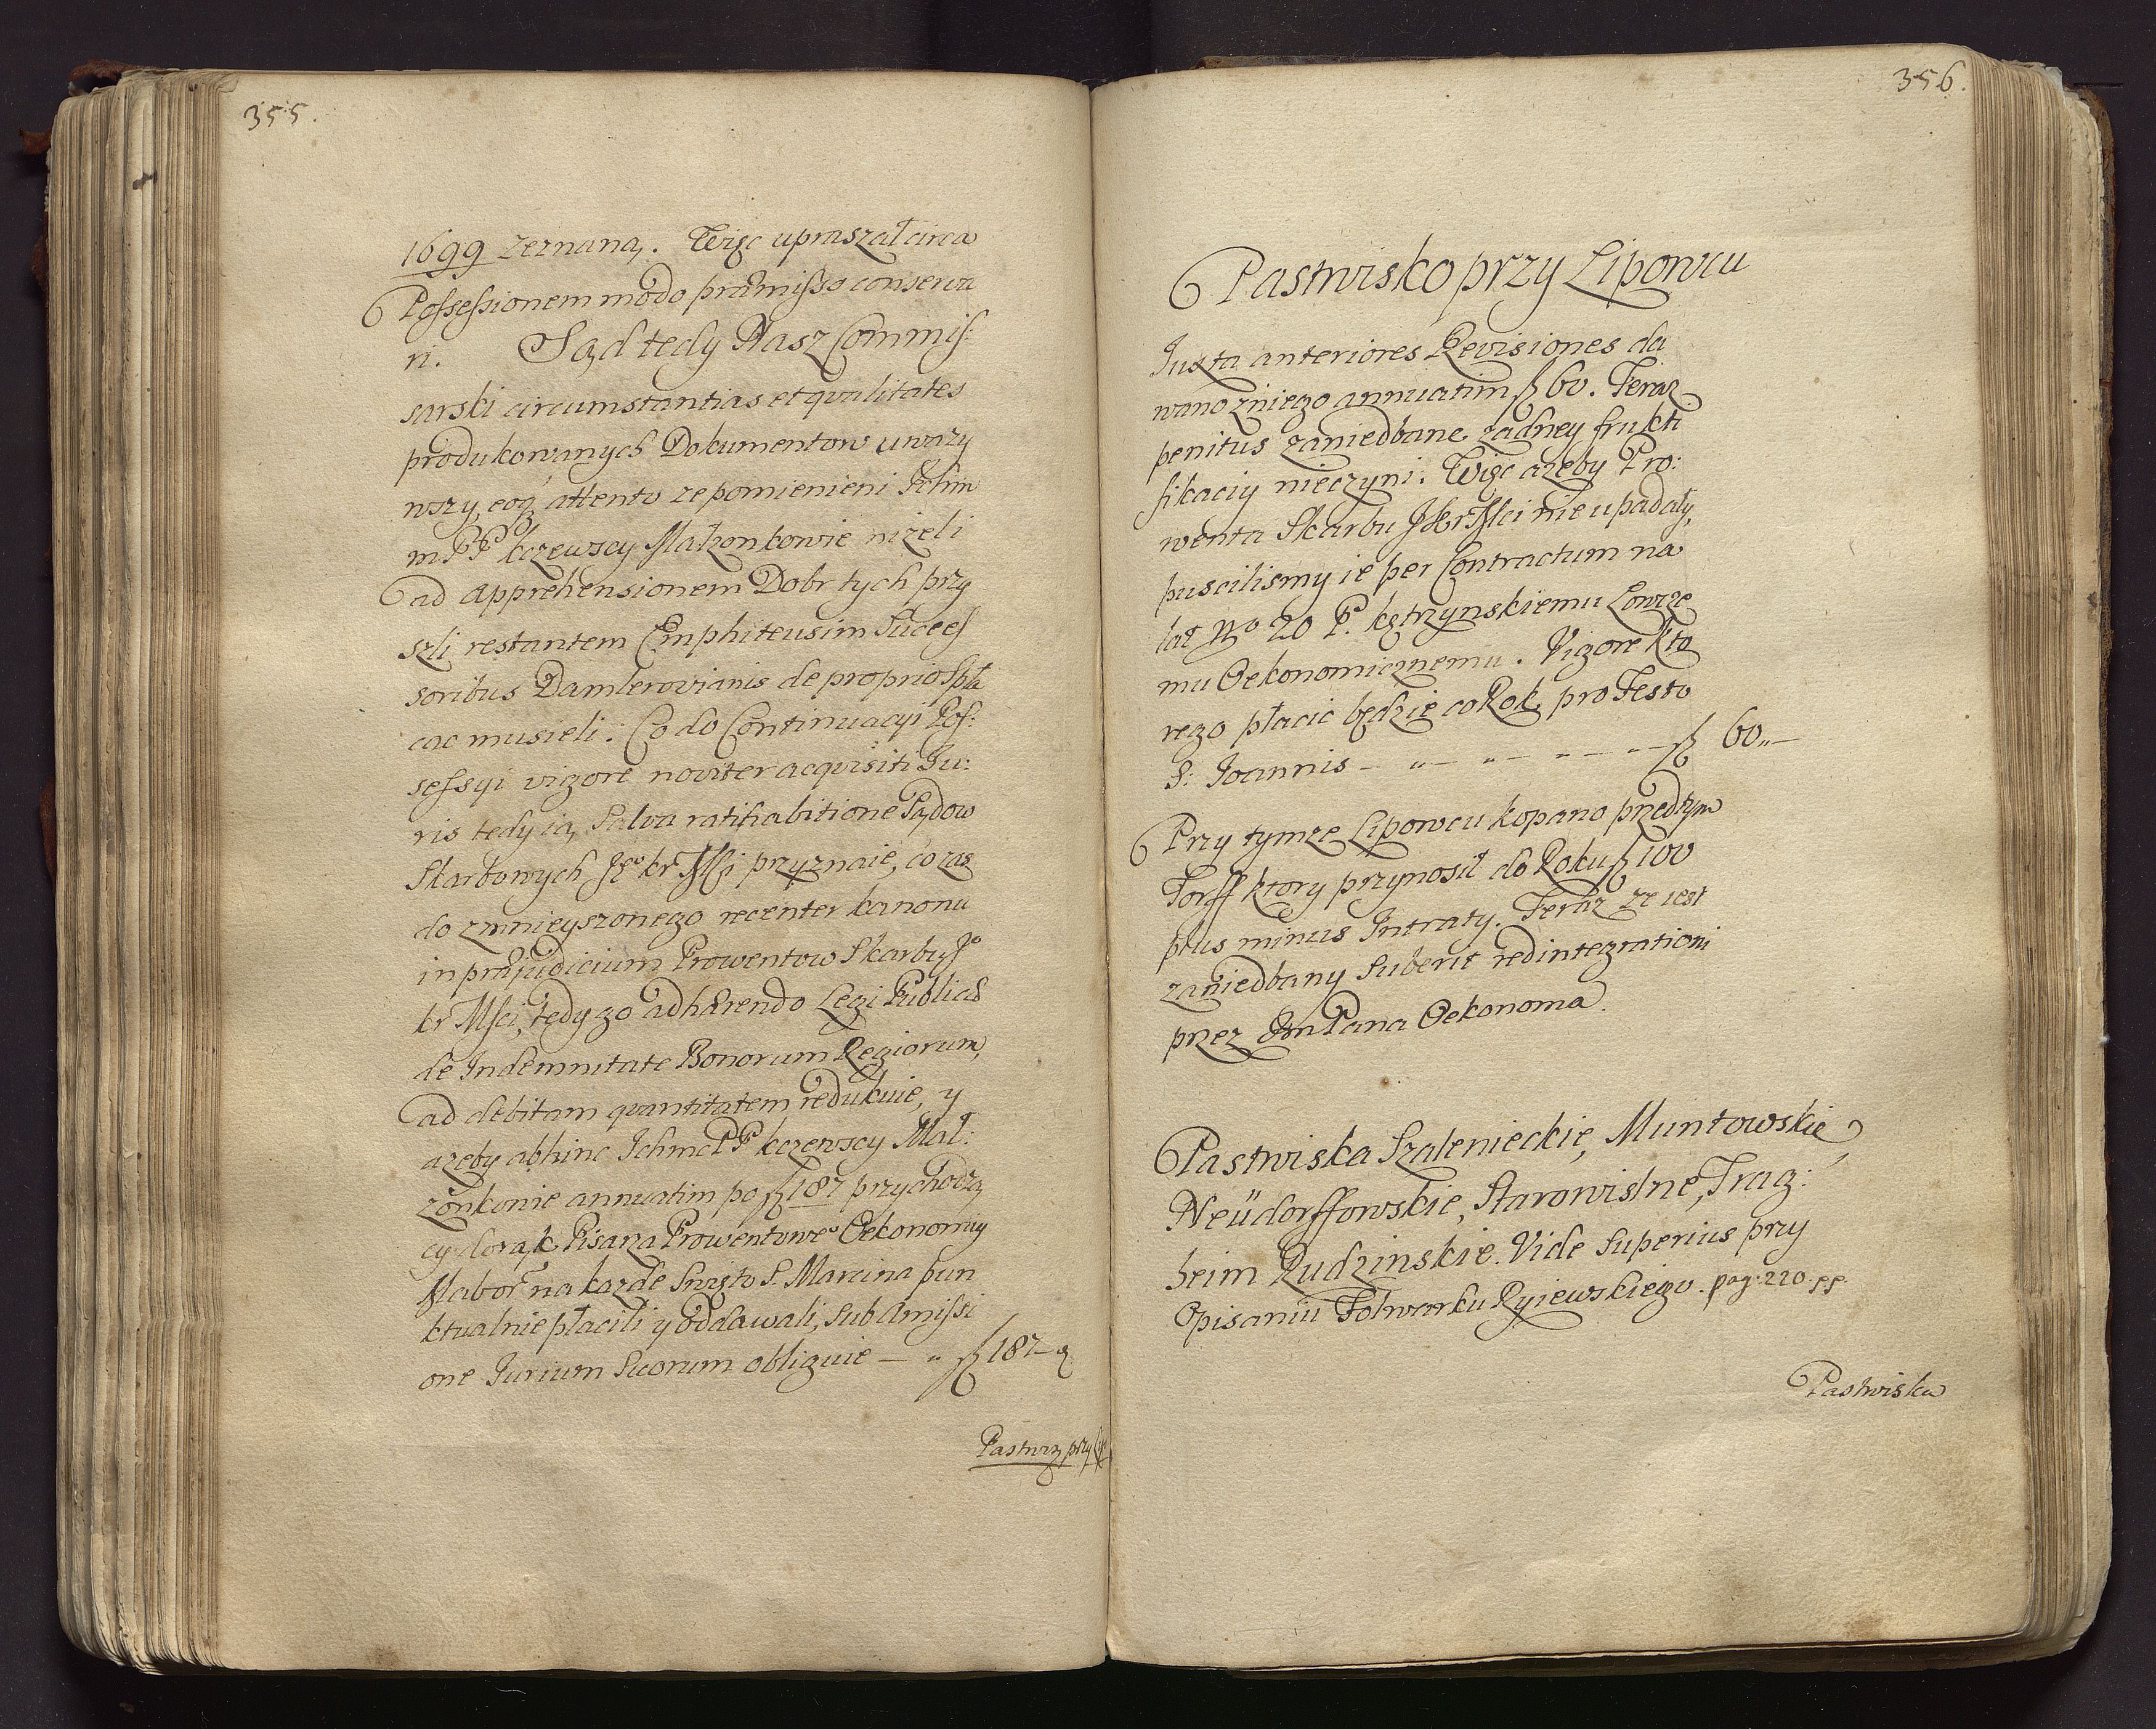 355.
1699 zeznaną. Więc upraszał circa
Possessionem modo præmisso conserva
ri. Sąd tedy Nasz Commis:
sarski circumstantias et qvalitates
produkowanych Dokumentow uwazy
wszy, eoq attento ze pomienieni Ichm
m PP kczewscy Małzonkowie nizeli
ad apprehensionem Dobr tych przy
szli restantem Emphiteusim Succes
soribus Damlerovianis de proprio spła
cac musieli. Co do Continuacyi Pos:
sessyi vigore noviter acqvisiti Ju:
ris tedy ią, Salva ratihabitione Sądow
Skarbowych Jº kr Mści przyznaie, co zas
do zmnieyszonego recenter kanonu
in præjudicium Prowentow Skarbu Jº
kr Mści, tedy go adhærendo Legi Publicæ
de Indemnitate Bonorum Regiorum,
ad debitam qvantitatem redukuie, y
azeby abhinc Ichmc PP kczewscy Mał:
zonkowie annuatim po fl 187 przychodzą
cy do rąk Pisarza Prowentowº Oekonomiy
Malborº na kazde Swięto S. Marcina pun
ktualnie płacili y oddawali, sub Amissi
one Jurium Suorum obliguie — " fl 187 –
Pastwis. przy Lip
356.
Pastwisko przy Lipowcu
Juxta anteriores Revisiones da
wano zniego annuatim fl 60. Teraz
penitus zaniedbane zadney frukti
fikaciy nieczyni. Więc azeby Pro:
wenta Skarbu J Kr Mści nie upadały,
puscilismy ie per Contractum na
lat Nº 20 P. kętrzynskiemu Lowcze
mu Oekonomicznemu. Vigore kto
rego płacic będzie co Rok pro Festo
S: Joannis – " – " – " – " – fl 60 " —
Przy tymze Lipowcu kopano przedtym
Torff ktory przynosił do Roku fl 100
plus minus Intraty. Teraz ze iest
zaniedbany suberit redintegrationi
przez Jm Pana Oekonoma.
Pastwiska Szalenieckie, Muntowskie,
Neüdorffowskie, Starowislne, Trag:
heim Rudzinskie. Vide superius przy
Opisaniu Folwarku Ryiewskiego. pag. 220. ss.
Pastwiska